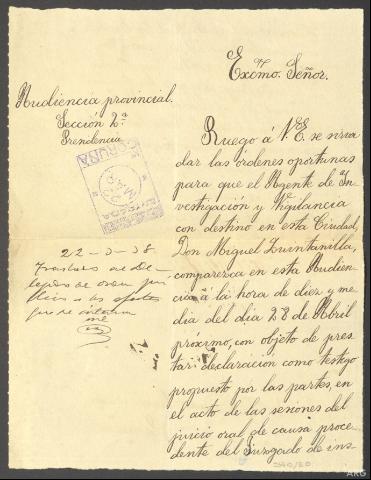 Excmo. Señor.
Audiencia provincial.
Sección 2ª
Presidencia
CORUÑA
Ruego á V.E. se sirva
dar las órdenes oportunas
para que el Agente de In-
vestigación y Vigilancia
con destino en esta Ciudad,
Don Miguel Quintanilla,
comparezca en esta Audien-
cia á la hora de diez y me-
dia del dia 28 de Abril
próximo, con objeto de pres-
tar declaración como testigo
propuesto por las partes, en
el acto de las sesiones del
juicio oral de causa proce-
dente del juzgado de ins-
22-3-38
de orden
a los efectos
que se
ARG